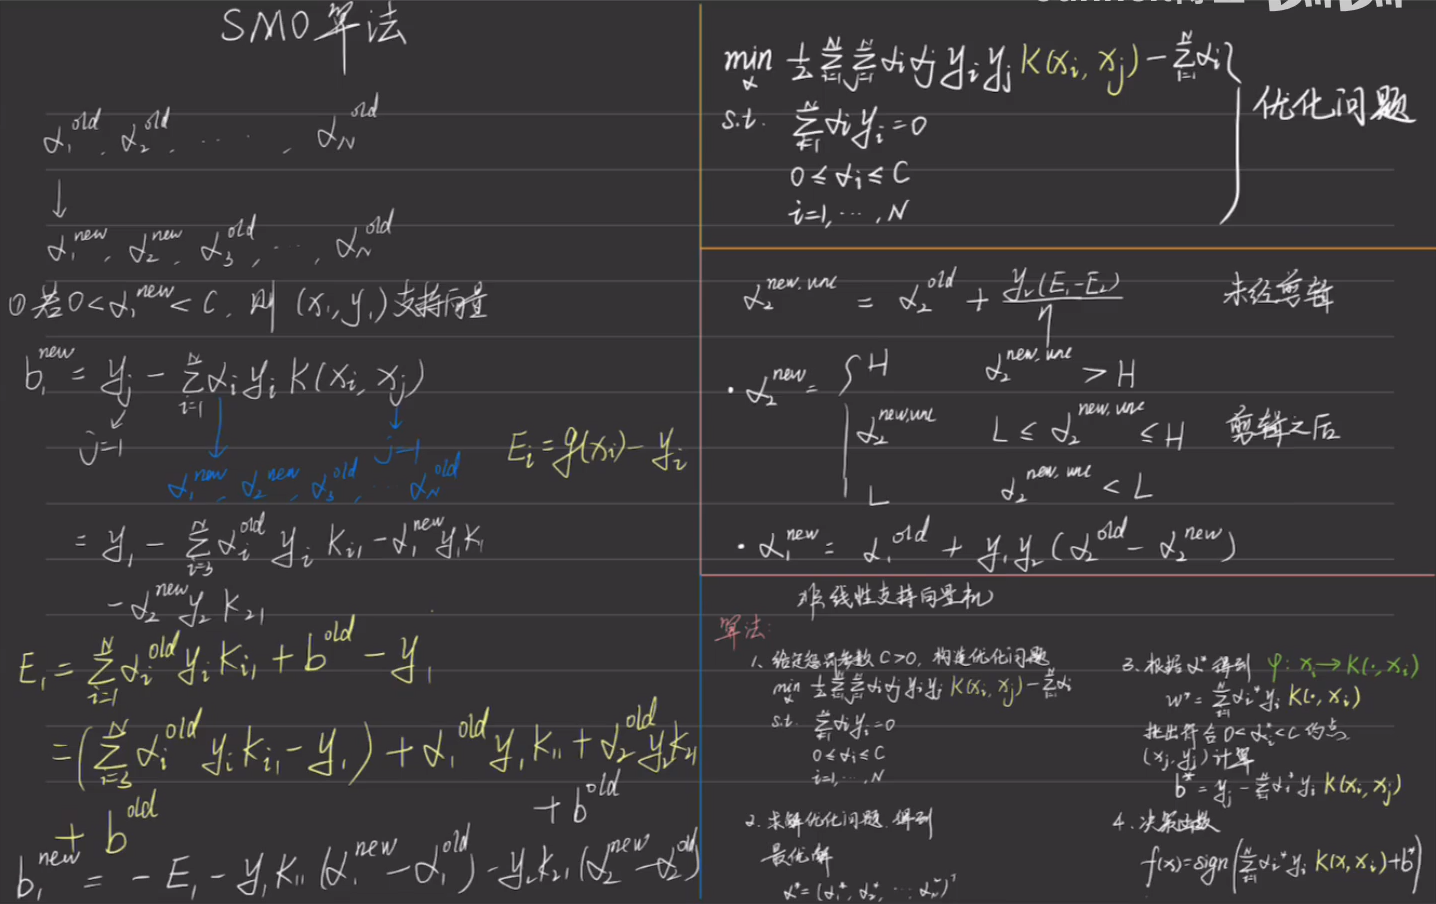 SMO算法
α₁^old, α₂^old, ⋯, α_N^old
↓
α₁^new, α₂^new, α₃^old, ⋯, α_N^old
① 若0<α₁^new<C, 则 (x₁,y₁)支持向量
b₁^new = y_j - Σ_{i=1}^N α_i y_i K(x_i, x_j)
j=1
j=1
α₁^new, α₂^new, α₃^old, ⋯ α_N^old
E_i = g(x_i) - y_i
= y₁ - Σ_{i=3}^N α_i^old y_i K_{i1} - α₁^new y₁K₁₁
- α₂^new y₂ K₂₁
E₁ = Σ_{i=1}^N α_i^old y_i K_{i1} + b^old - y₁
= (Σ_{i=3}^N α_i^old y_i K_{i1} - y₁) + α₁^old y₁K₁₁ + α₂^old y₂K₂₁
+ b^old
+ b^old
b₁^new = -E₁ - y₁K₁₁(α₁^new - α₁^old) - y₂K₂₁(α₂^new - α₂^old)
min_α ½ Σ_{i=1}^N Σ_{j=1}^N α_i α_j y_i y_j K(x_i, x_j) - Σ_{i=1}^N α_i
s.t. Σ_{i=1}^N α_i y_i = 0
优化问题
0 ≤ α_i ≤ C
i=1, ⋯, N
α₂^{new,unc} = α₂^old + y₂(E₁-E₂)/η 未经剪辑
· α₂^new = { H α₂^{new,unc} > H
α₂^{new,unc} L ≤ α₂^{new,unc} ≤ H 剪辑之后
L α₂^{new,unc} < L
· α₁^new = α₁^old + y₁y₂(α₂^old - α₂^new)
线性支持向量机
算法:
1、给定惩罚参数 C>0, 构造优化问题
min_α ½ Σ_{i=1}^N Σ_{j=1}^N α_i α_j y_i y_j K(x_i, x_j) - Σ_{i=1}^N α_i
s.t. Σ_{i=1}^N α_i y_i = 0
0 ≤ α_i ≤ C
i=1, ⋯, N
2、求解优化问题, 得到
最优解
α* = (α₁*, α₂*, ⋯ α_N*)ᵀ
3、根据α*得到 φ: x_i → K(·, x_i)
w* = Σ_{i=1}^N α_i* y_i K(·, x_i)
找出符合 0<α_j*<C 的点
(x_j, y_j) 计算
b* = y_j - Σ_{i=1}^N α_i* y_i K(x_i, x_j)
4、决策函数
f(x) = sign(Σ_{i=1}^N α_i* y_i K(x, x_i) + b*)